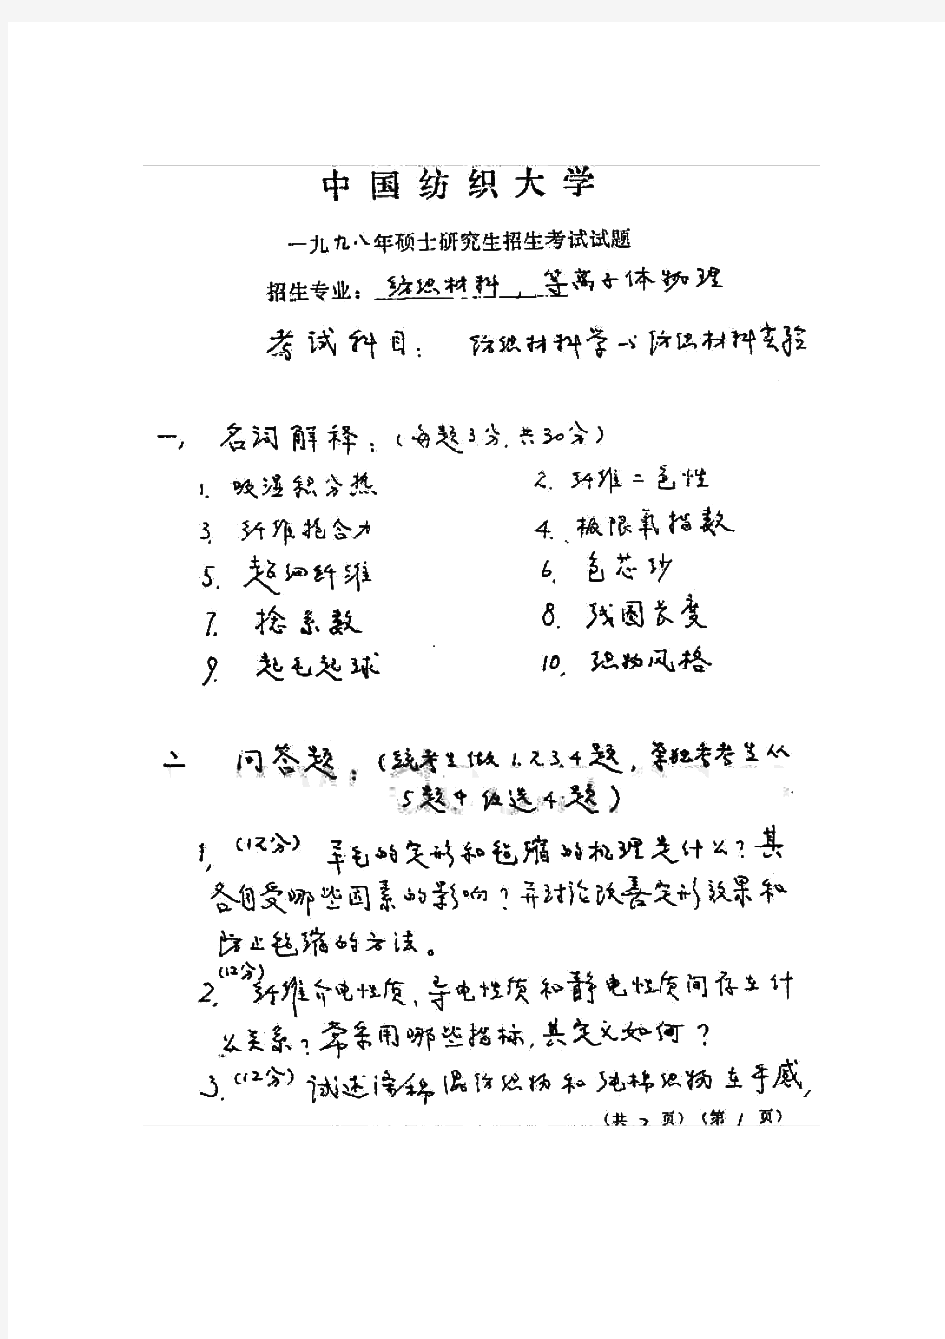 中国纺织大学
一九九八年硕士研究生招生考试试题
招生专业：纺织材料，等离子体物理
考试科目：纺织材料学与纺织材料实验
一，名词解释：（每题3分，共30分）
1. 吸湿积分热 2. 纤维二色性
3. 纤维抱合力 4. 极限氧指数
5. 超细纤维 6. 包芯纱
7. 捻系数 8. 线圈长度
9. 起毛起球 10. 织物风格
二 问答题：（统考生做1.2.3.4题，单独考考生从
5题中任选4题）
1.（12分）羊毛的定形和毡缩的机理是什么？其
各自受哪些因素的影响？并讨论改善定形效果和
防止毡缩的方法。
2.（12分）纤维介电性质、导电性质和静电性质间存在什
么关系？常采用哪些指标，其定义如何？
3.（12分）试述涤棉混纺织物和纯棉织物在手感，
（共2页）（第1页）